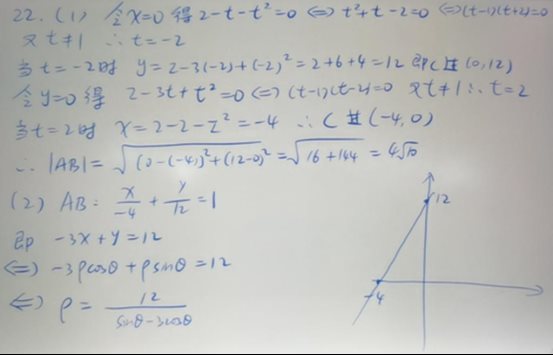 22.(1) 令x=0 得 2-t-t²=0 ⇔ t²+t-2=0 ⇔(t-1)(t+2)=0
又t≠1 ∴t=-2
当t=-2时 y=2-3(-2)+(-2)²=2+6+4=12 即C过(0,12)
令y=0得 2-3t+t²=0⇔(t-1)(t-2)=0 又t≠1∴t=2
当t=2时 x=2-2-2²=-4 ∴C过(-4,0)
∴|AB|=√(0-(-4))²+(12-0)²=√16+144=4√10
(2) AB: x/-4 + y/12 =1
即 -3x+y=12
⇔ -3ρcosθ+ρsinθ=12
⇔ ρ= 12/sinθ-3cosθ
12
-4